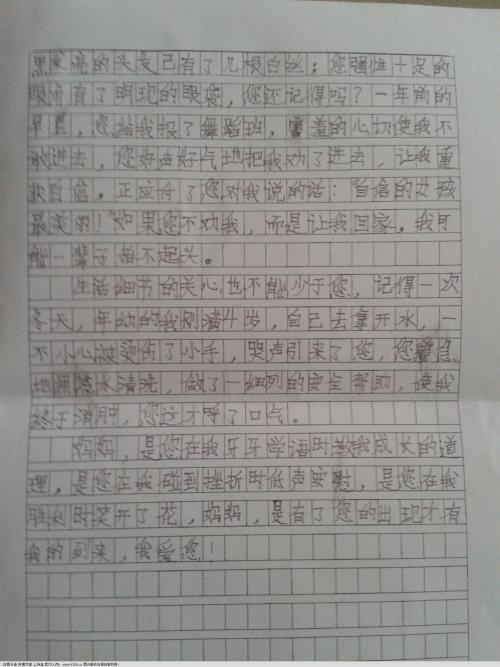 黑又亮的头发已有了几根白丝；您强性十足的
眼角有了明现的眼袋，您还记得吗？一年前的
早晨，您给我报了舞蹈班，害羞的心切使我不
敢进去，您好声好气地把我劝了进去，让我重
获自信。正应付了您对我说的话："自信的女孩
最美丽！"如果您不劝我，而是让我回家，我可
能一辈子抬不起头。
生活细节的关心也不能少于您，记得一次
冬天，年幼的我刚满4岁，自己去拿开水，一
不小心被烫伤了小手，哭声引来了您，您
地用冷水清洗，做了一细列的安全帮助，使我
终于消肿，您这才呼了口气。
妈妈，是您在我牙牙学语时教我成长的道
理，是您在我碰到挫折时低声安慰，是您在我
时笑开了花，妈妈，是有了您的出现才有
我的到来，我爱您！